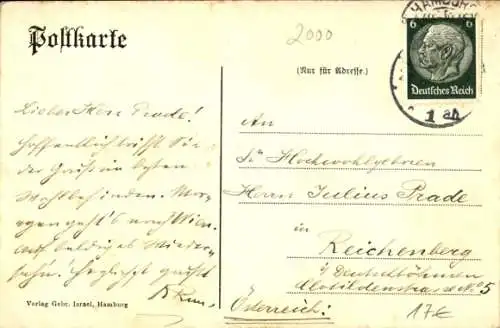 Postkarte
2000
(Nur für Adresse.)
HAMBURG
1
6
Deutsches Reich
Lieber Herr Prade!
Hoffentlich trifft Sie
der Gruß im besten
Wohlbefinden. Mor-
gen geht's nach Wien.
Auf baldiges Wieder-
sehn! Herzlichst grüßt
An
Sr Hochwohlgeboren
Herrn Julius Prade
in
Reichenberg
i/ Deutschböhmen
5
Österreich
17€
Verlag Gebr. Israel, Hamburg